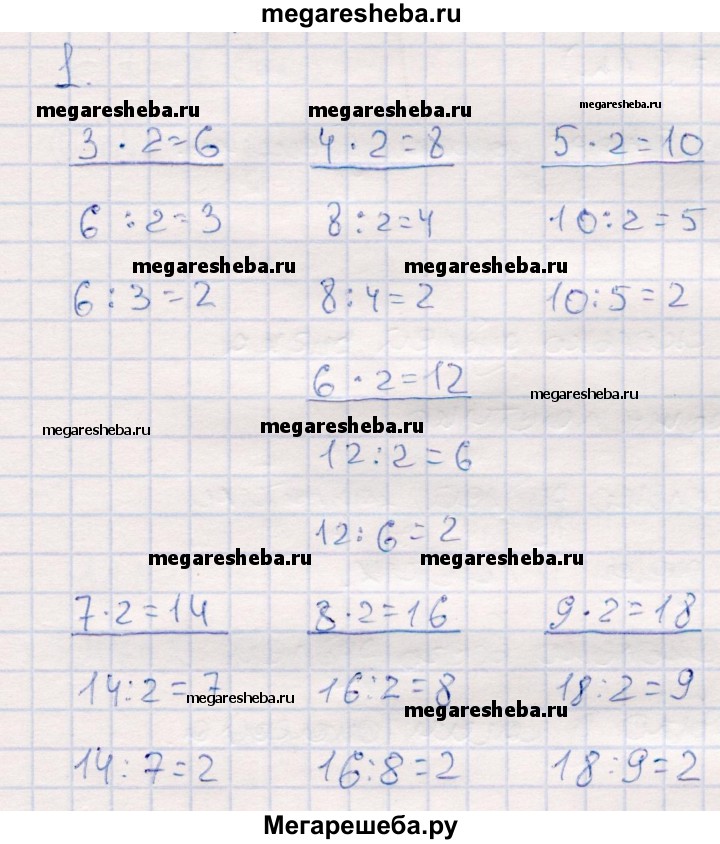 megaresheba.ru
1.
megaresheba.ru megaresheba.ru megaresheba.ru
3 · 2 = 6 4 · 2 = 8 5 · 2 = 10
6 : 2 = 3 8 : 2 = 4 10 : 2 = 5
megaresheba.ru megaresheba.ru
6 : 3 = 2 8 : 4 = 2 10 : 5 = 2
6 · 2 = 12
megaresheba.ru
megaresheba.ru megaresheba.ru
12 : 2 = 6
12 : 6 = 2
megaresheba.ru megaresheba.ru
7 · 2 = 14 8 · 2 = 16 9 · 2 = 18
14 : 2 = 7 16 : 2 = 8 18 : 2 = 9
megaresheba.ru megaresheba.ru
14 : 7 = 2 16 : 8 = 2 18 : 9 = 2
Мегарешеба.ру